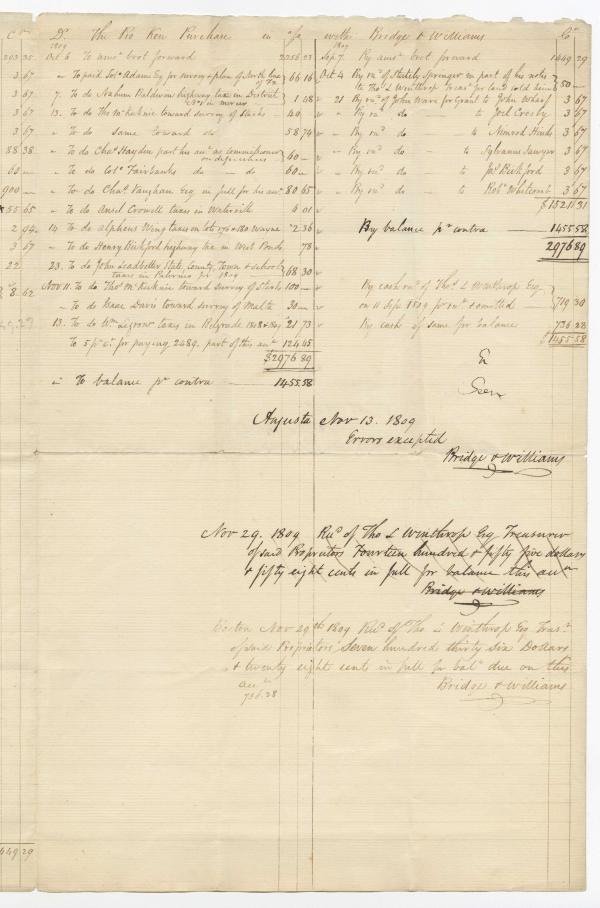 C
203 35
3 67
3 67
3 67
3 67
88 38
60 —
900 —
55 65
2 94
3 67
22
8. 62
449 29
Dr. The Pro Ken Purchase in a/c
1809
Oct 6 To amot brot forward 2256 23
" To paid Solo Adams Esq for survey & plan of North line of 66 16
7. To do Nahum Baldwin highway tax in District No 1 in mercer 1 48
13. To do Tho McKechnie toward survey of Starks — 40
" To do same toward do 58 74
" To do Chas Hayden part his acct as commissioner on disputed 60 —
" To do Colo Fairbanks do — do 60 —
" To do Chas Vaughan Esq in full for his acct 80 65
" To do Ansel Crowell taxes in Waterville 6 01
14 To do Alpheus Wing taxes on lots 175 & 180 Wayne 2 36
" To do Henry Richford highway tax in West Ponds 78
23. To do John Leadbetter State, County, Town & school taxes in Palermo for 1809 68 30
Nov 11. To do Thos McKechnie toward survey of Starks 100 —
" To do Isaac Davis toward survey of Malta 30 —
13. To do Wm taxes in Belgrade 1808 & 1809 21 73
To 5 pr ct. for paying 2489. part of this acct 124 45
$2976 89
" To balance pr contra — 1455.58
with Bridge & Williams Cr.
1809
Sep 7 By amot brot forward 1449 29
Oct 4 By rect of Stukely Springer in part of his notes to Tho L Winthrop Treasr for land sold him 50 —
" 21 By rect of John Ware for Grant to John Wharf 3 67
" " By rect do — to Joel Crosby 3 67
" " By rect do — to Nimrod Hinds 3 67
" " By rect do — to Sylvanus Sawyer 3 67
" " By rect do — to Jas Bickford 3 67
" " By rect do — to Robt Whitcomb 3 67
$1521 31
By balance pr contra — 1455.58
2976 89
By cash rect of Thos L Winthrop Esq on 11 Sep. 1809 pr rect & omitted — 719 30
By cash of same for balance 736.28
$1455.58
Ex
Seen
Augusta Nov 13. 1809
Errors excepted
Bridge & Williams
Nov 29. 1809 Recd of Tho L Winthrop Esq Treasurer
of said Proprietors Fourteen hundred & fifty five dollars
& fifty eight cents in full for balance this acct
Bridge & Williams
Boston Nov 29th 1809 Recd of Tho L Winthrop Esq Treasr
of said Proprietors, Seven hundred thirty six Dollars
& twenty eight cents in full for bale due on this
acct
736.28
Bridge & Williams